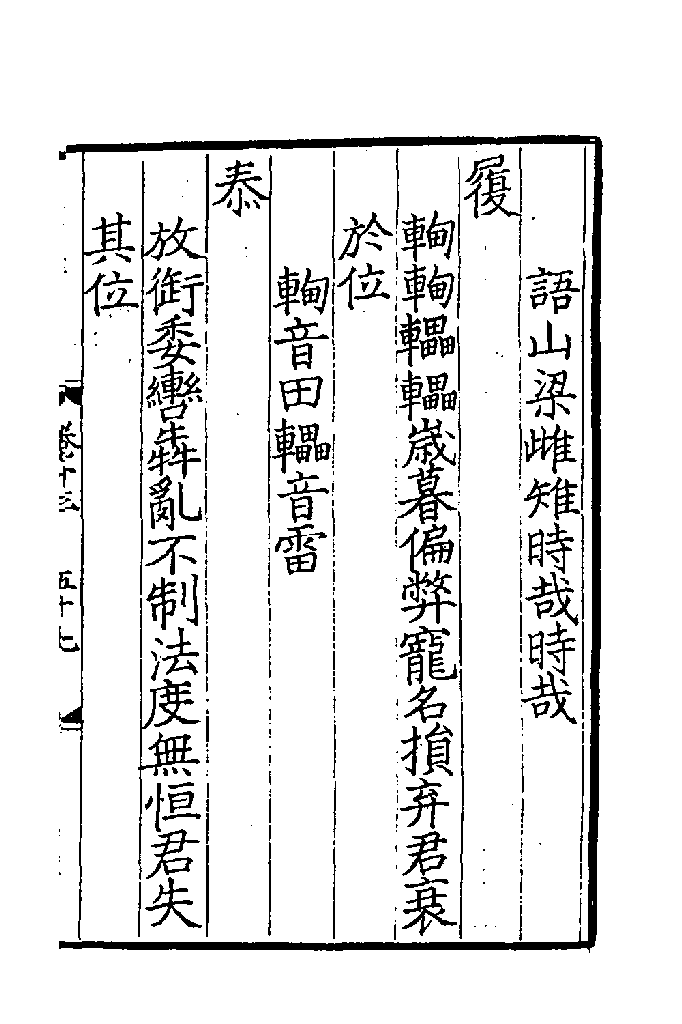 語山梁雌雉時哉時哉
履
轠轠嵗暮偏弊寵名損弃君衰
於位
音田轠音雷
泰
放銜委轡奔亂不制法度無恒君失
其位
卷十三 五十七